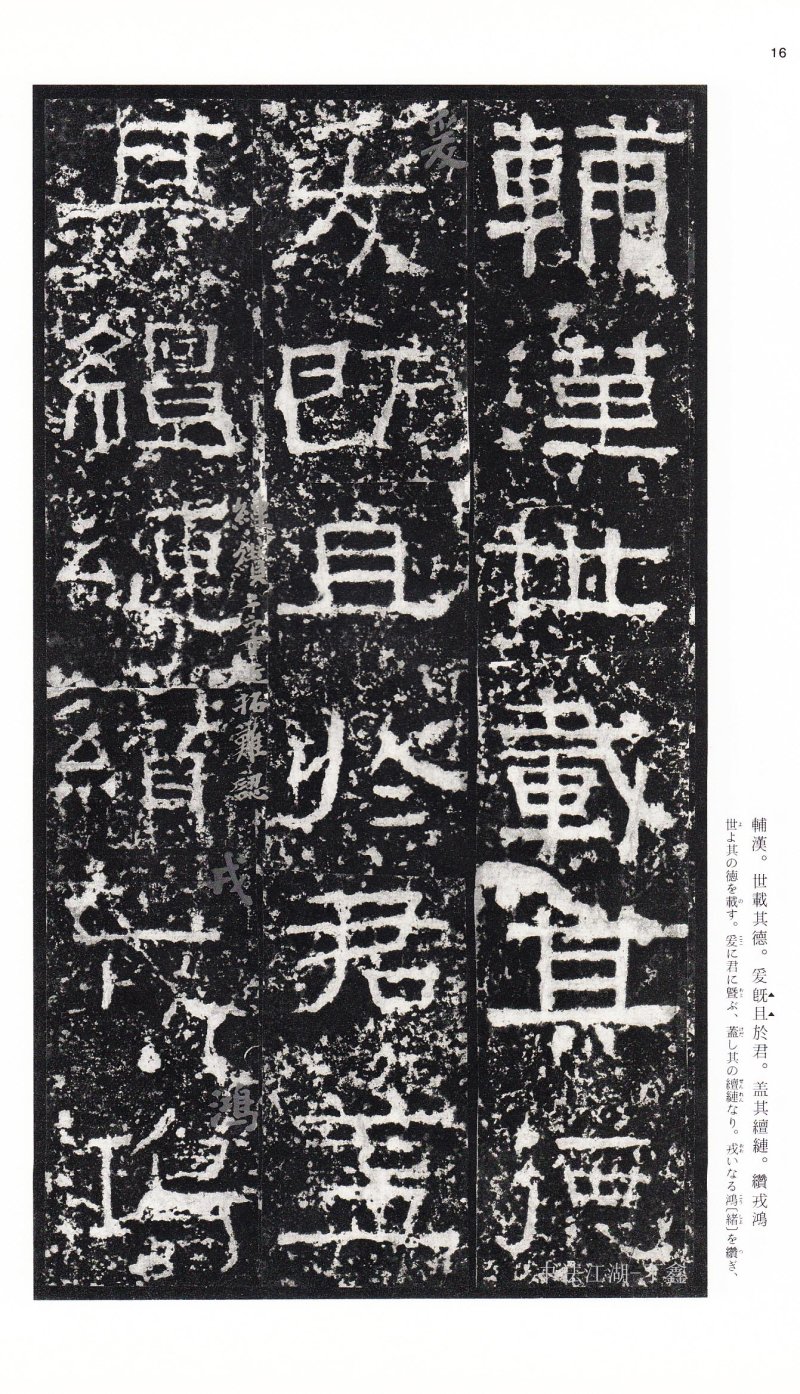 16
輔漢世載其德
爰既且於君蓋
其繵縺纘戎鴻
爰
戎
鴻
輔漢。世載其德。爰既且於君。盖其繵縺。纘戎鴻
世よ其の德を載す。爰に君に曁ぶ、蓋し其の繵縺なり。戎いなる鴻〔緒〕を纘ぎ、